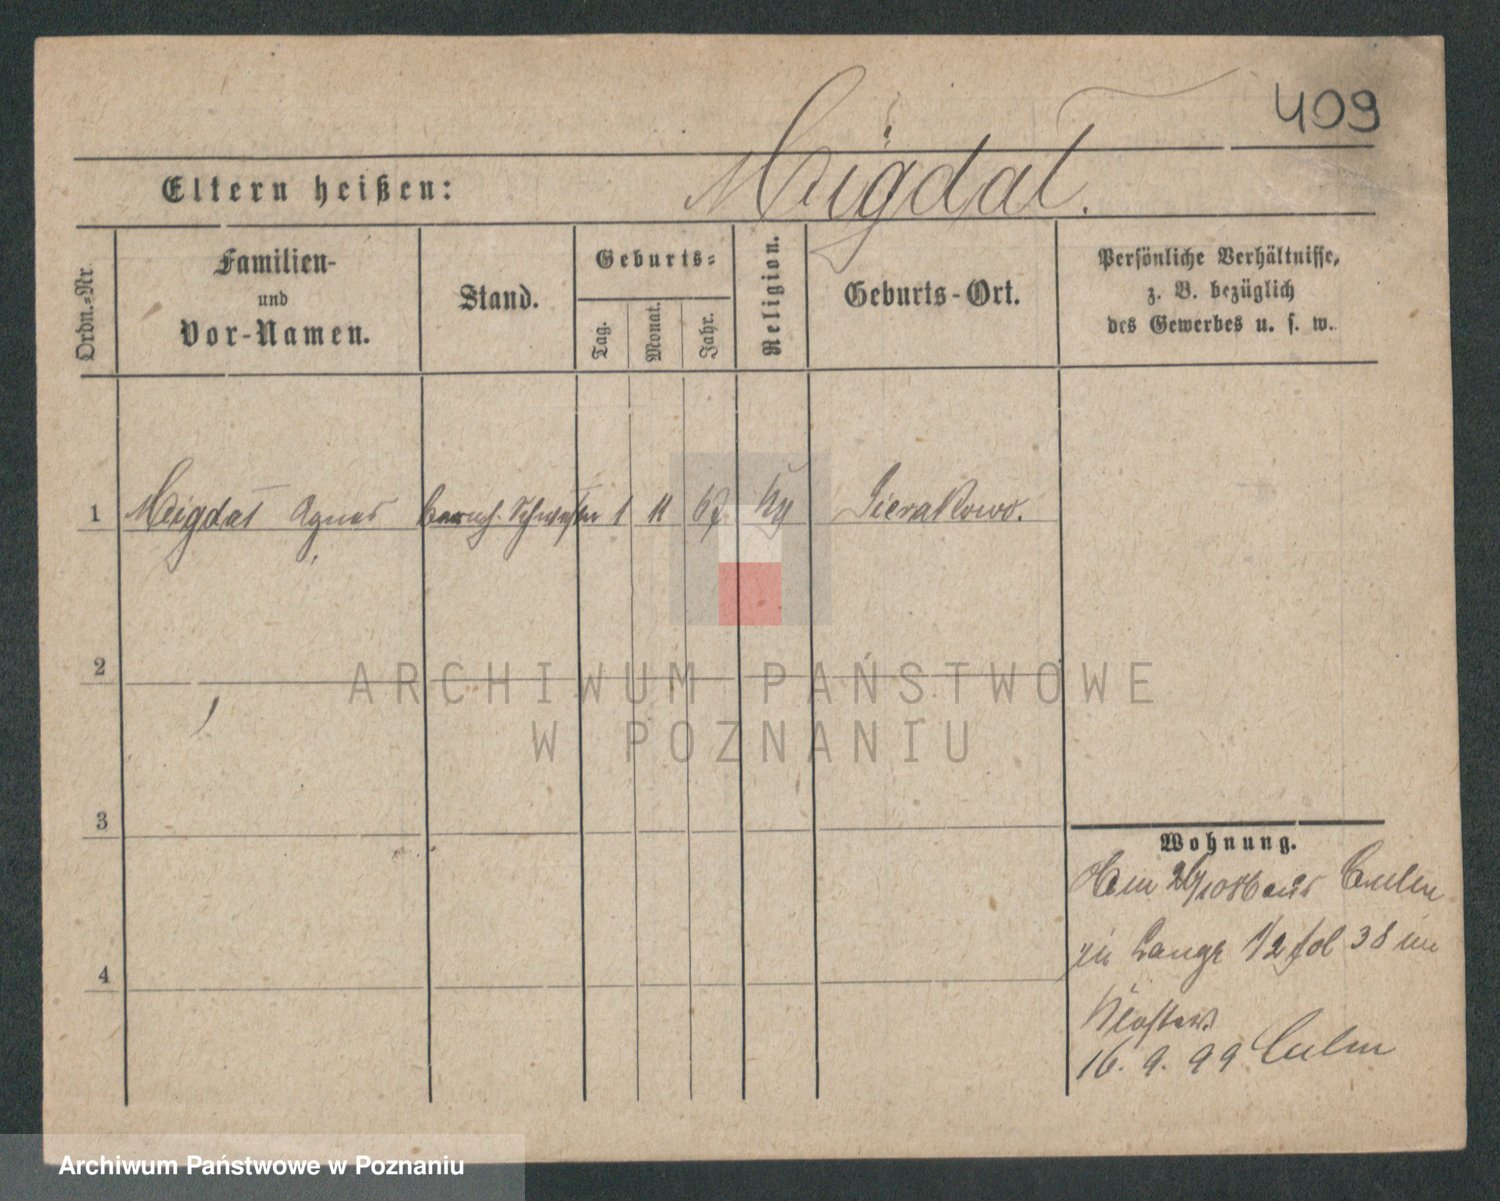 409
Eltern heißen: Migdal.
Ordn.-Nr.
Familien-
und
Vor-Namen.
Stand.
Geburts-
Tag.
Monat.
Jahr.
Religion.
Geburts-Ort.
Persönliche Verhältnisse,
z. B. bezüglich
des Gewerbes u. s. w.
1 Migdal Agnes barmh. Schwester 1 11 67 Sierakowo.
2
3
4
Wohnung.
aus Culm
zu Lange 1/2 fol 38 im
Kloster.
16. 9. 99 Culm
ARCHIWUM PAŃSTWOWE
W POZNANIU
Archiwum Państwowe w Poznaniu